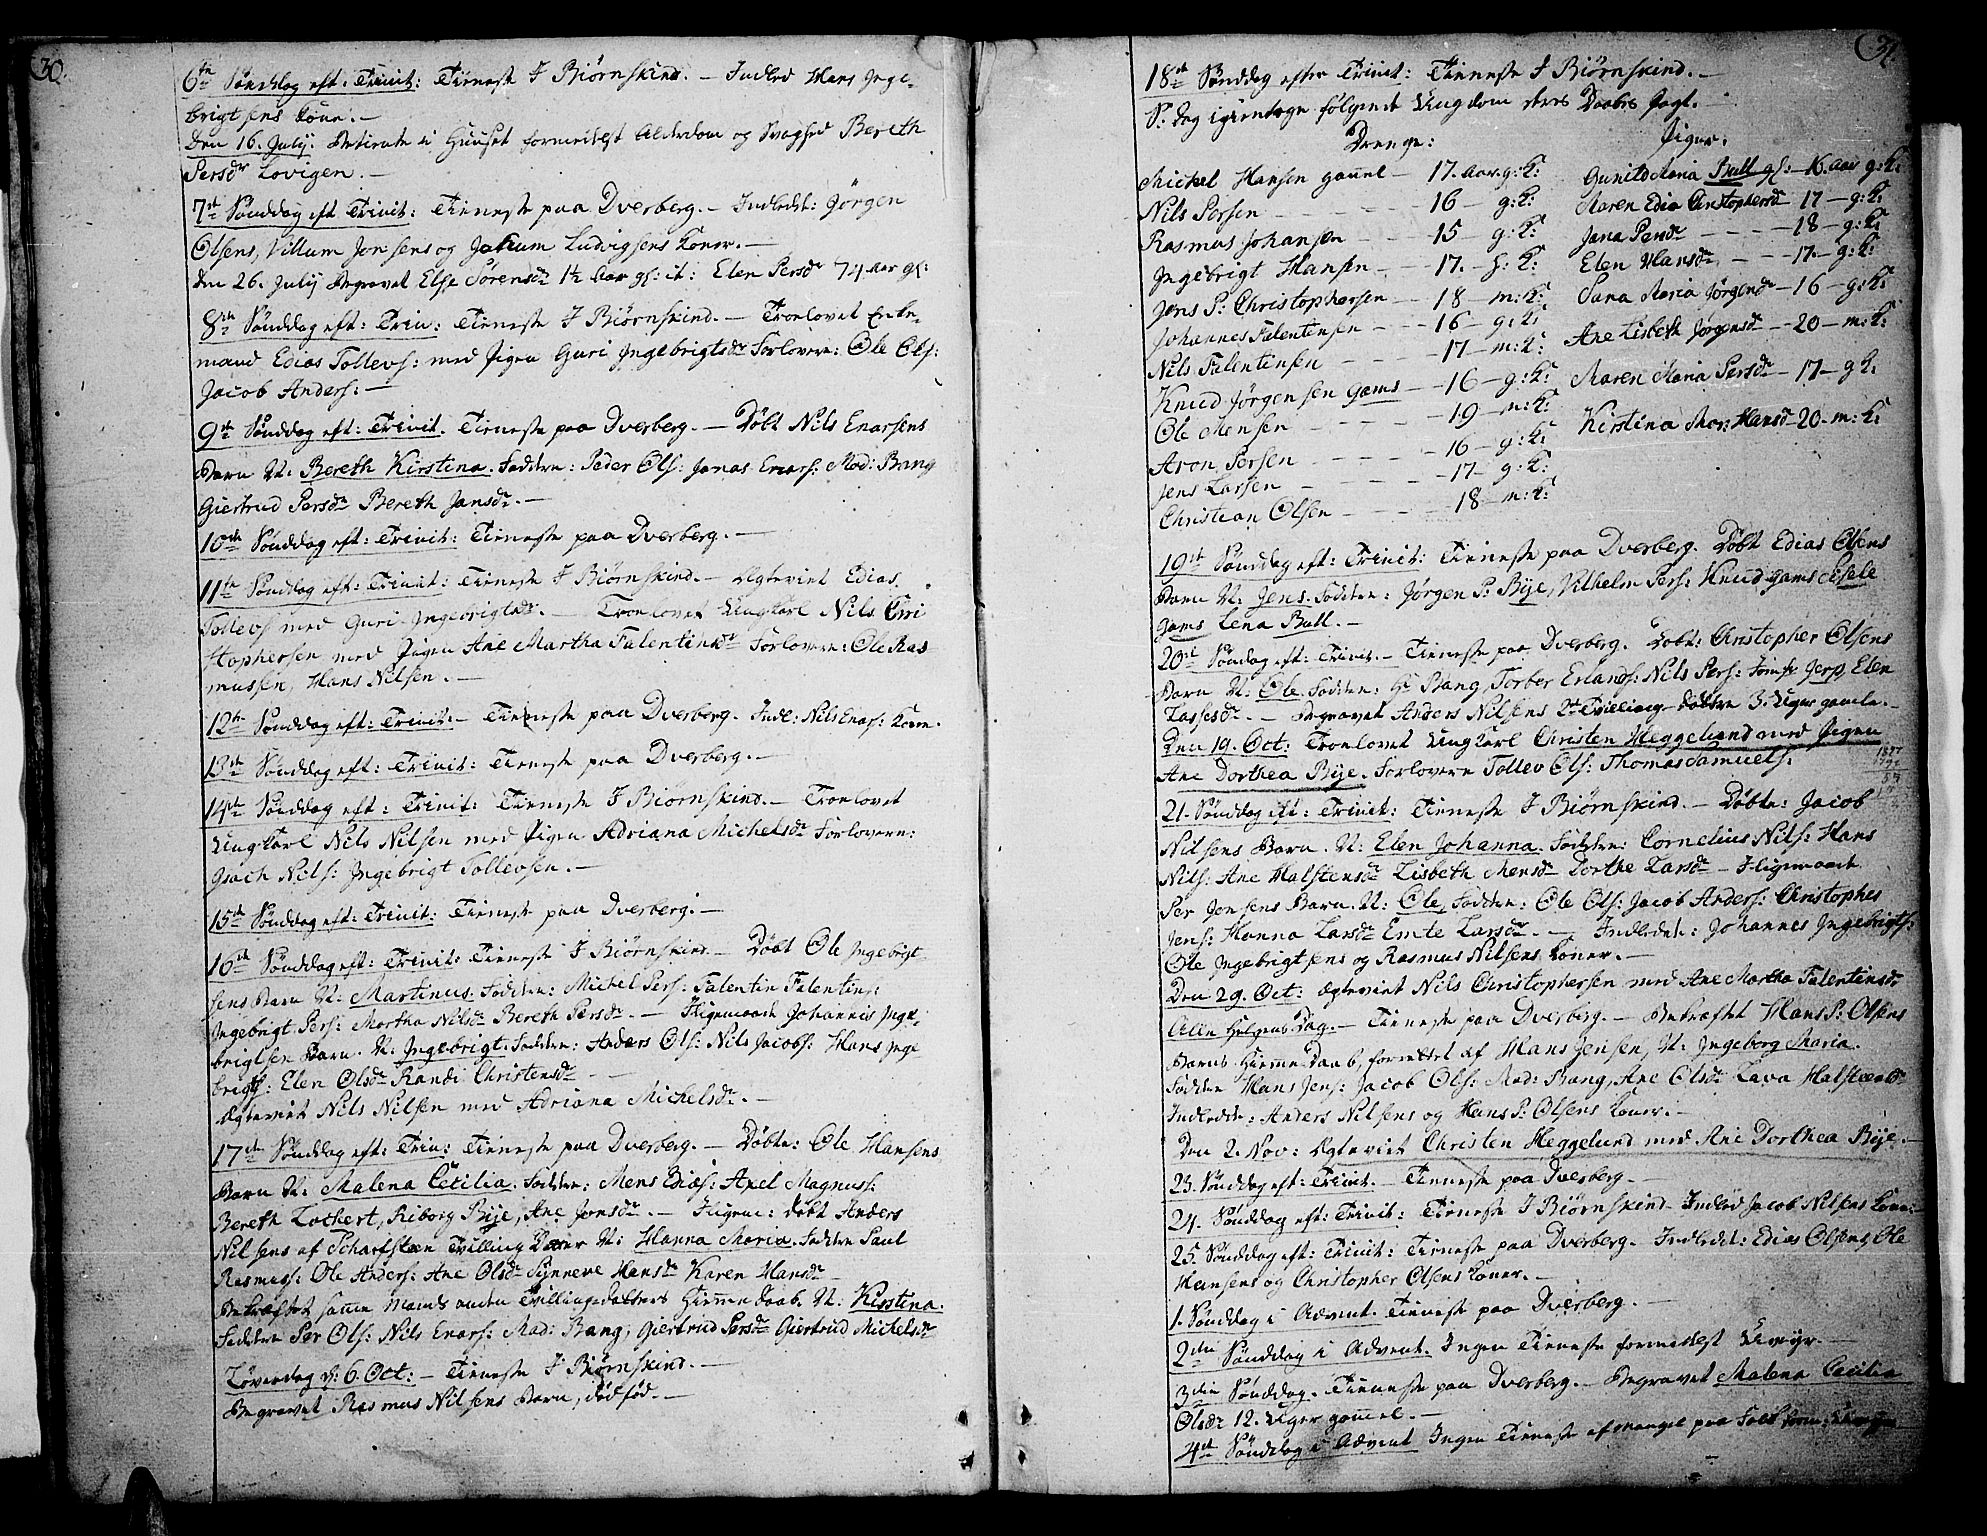 30.
6te Sønddag eft. Trinit: Tieneste I Biørnskind. — Indled Hans Inge-
brigtsens Kone. —
Den 16. July. Betiente i Huuset formedelst Alderdom og Svaghed Bereth
Persdr Lovigen. —
7de Sønddag eft Trinit: Tieneste paa Dverberg. — Indledt: Jørgen
Olsens, Villum Jonsens og Jochum Ludvigsens Koner. —
Den 26. July Begravet Else Sörensdr 1½ Aar gl: it: Elen Persdr 74 Aar gl:
8de Sønddag eft: Trin: Tieneste I Biørnskind. — Troelovet Enke-
mand Edias Tollevs: med Pigen Guri Ingebrigtsdr Forlovere: Ole Ols:
Jacob Anders: —
9de Sønddag eft: Trinit. Tieneste paa Dverberg. — Døbt Nils Enarsens
Barn N: Bereth Kirstina. Fadder: Peder Ols: Jonas Enars: Mad: Bang
Giertrud Persdr Bereth Jansdr. —
10de Sønddag eft: Trinit: Tieneste paa Dverberg. —
11te Sønddag eft: Trinit: Tieneste I Biørnskind. — Ægteviet Edias
Tollevs med Guri Ingebrigtsdr. — Troelovet Ungkarl Nils Chri
stophersen med Pigen Ane Martha Falentinsdr Forlovere: Ole Ras
mussen, Hans Nilsen. —
12te Sønddag eft: Trinit. — Tieneste paa Dverberg. Indl: Nils Enars: Kone.
13de Sønddag eft: Trinit: Tieneste paa Dverberg. —
14de Sønddag eft: Trinit: Tieneste I Biørnskind. — Troelovet
Ungkarl Nils Nilsen med Pigen Adriana Michelsdr Forlovere:
Isach Nils: Ingebrigt Tollevsen. —
15de Sønddag eft: Trinit: Tieneste paa Dverberg. —
16de Sønddag eft: Trinit: Tieneste I Biørnskind. — Døbt Ole Ingebrigt
sens Barn N: Martinus. Fadder: Michel Pers: Falentin Falentins:
Ingebrigt Pers: Martha Nilsdr Bereth Persdr. — Iligemaade Johannis Inge
brigtsen Barn. N: Ingebrigt. Fadder: Anders Ols: Nils Jacobs: Hans Inge
brigts: Elen Olsdr Randi Christensdr —
Ægteviet Nils Nilsen med Adriana Michelsdr. —
17de Sønddag eft: Trin: Tieneste paa Dverberg. — Døbt: Ole Hansens
Barn N: Malena Cecilia. Fadder: Mens Edias: Axel Magnus:
Bereth Lochert, Riborg Bije, Ane Jonsdr. — Iligem: døbt Anders
Nilsens af Scharfsteen Tvilling Datter N: Hanna Maria. Fadder Paul
Rasmuss: Ole Anders: Ane Olsdr Synneve Hansdr Karen Hansdr
Bekræftet samme Mands anden Tvillingdatters Hiemmedaab. N: Kirstina.
Faddere Per Ols: Nils Enars: Mad: Bang, Giertrud Persdr Giertrud Michelsdr
Løverdag d: 6. Oct: — Tieneste I Biørnskind. —
Begravet Rasmus Nilsens Barn, dødfød. —
31.
18de Sønddag efter Trinit: Tieneste I Biørnskind. —
S: Dag igientoge følgende Ungdom deres Daabes Pagt.
Drenge: Piger.
Michel Hansen gammel — 17. Aar. g: K: Gunild Maria Bull gl: — 16 Aar g: K:
Nils Persen — 16 — g: K: Maren Edia Christophersd — 17 — g: K:
Rasmus Johansen — 15 — g: K: Jana Persdr — 18 — g: K:
Ingebrigt Hansen — 17. — g: K: Elen Hansdr — 17. — g: K:
Jens P: Christophersen — 18 — m: K: Sara Maria Jørgensdr — 16 — g: K:
Johannes Falentinsen — 16 — g: K: Ane Lisbeth Jørgensdr — 20 — m: K:
Nils Falentinsen — 17 — m: K: Maren Maria Persdr — 17 — g K:
Knud Jørgensen Gams — 16 — g: K: Kirstina Mar: Hansd — 20 — m: K:
Ole Mensen — 19 — m: K:
Aron Persen — 16 — g: K:
Jens Larsen — 17 — g: K:
Christian Olsen — 18 — m: K:
19de Sønddag eft: Trinit: Tieneste paa Dverberg. Døbt Edias Olsens
Barn N: Jens. Fadder: Jørgen P: Bye, Vilhelm Pers: Knud Gams Cisele
Gams Lena Bull. —
20de Sønddag eft: Trinit. — Tieneste paa Dverberg. Døbt: Christopher Olsens
Barn N: Ole. Fadder: Hr Bang, Torber Erlands: Nils Pers: Jomfr Jersin, Elen
Lassesdr. — Begravet Anders Nilsens 2de Tvilling døttre 3. Uger gamle. —
Den 19. Oct: Troelovet Ungkarl Christen Heggelund med Pigen
Ane Dorthea Bije. Forlovere Tollev Ols: Thomas Samuels:
21. Sønddag eft: Trinit: Tieneste I Biørnskind. — Døbt: Jacob
Nilsens Barn. N: Elen Johanna. Fadder: Cornelius Nils: Hans
Nils: Ane Halstensdr Lisbeth Mensdr Dorthe Larsdr — Iligemaade
Per Jonsens Barn. N: Ole, Fadder: Ole Ols: Jacob Anders: Christopher
Jens: Hanna Larsdr Emte Larsdr. — Indledt: Johannes Ingebrigts:
Ole Ingebrigtsens og Rasmus Nilsens Koner. —
Den 29. Oct: Ægteviet Nils Christophersen med Ane Martha Falentinsdr
Alle Helgens Dag. — Tieneste paa Dverberg. — Bekræftet Hans P: Olsens
Barns Hiemme Daab, forrettet af Hans Jensen, N: Ingeborg Maria.
Fadder Hans Jens: Jacob Ols: Mad: Bang, Ane Olsdr Lava Halsteensdr
Indledt: Anders Nilsens og Hans P: Olsens Koner. —
Den 2. Nov: Ægteviet Christen Heggelund med Ane Dorthea Bije. —
23. Sønddag eft: Trinit. — Tieneste paa Dverberg. —
24. Sønddag eft: Trinit: Tieneste I Biørnskind — Indled Jacob Nilsens Kone. —
25. Sønddag eft: Trinit: Tieneste paa Dverberg. Indledt: Edias Olsens, Ole
Hansens og Christopher Olsens Koner. —
1. Sønddag i Advent. Tieneste paa Dverberg. —
2den Sønddag i Advent. Ingen Tieneste formedelst Uveyr. —
3die Sønddag. Tieneste paa Dverberg. — Begravet Malena Cecilia
Olsdr 12. Uger gammel. —
4de Sønddag i Advent Ingen Tieneste af Mangel paa Folk form: Uveyr